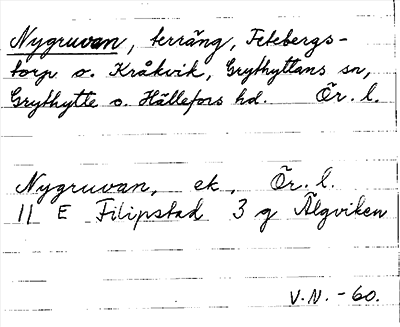 Nygruvan, terräng, Fetebergs-
torp o. Kråkvik, Grythyttans sn,
Grythytte o. Hällefors hd. Ör. l.
Nygruvan, ek, Ör. l.
11 E Filipstad 3 g Älgviken
V.N. - 60.